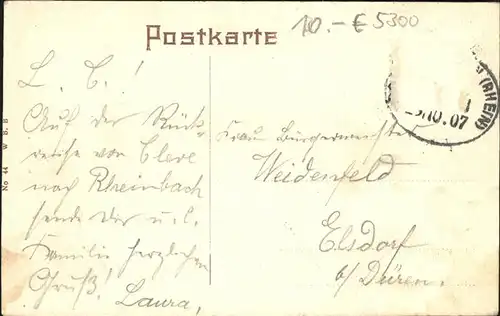 10.- € 5300
Postkarte
(RHEIN)
10.07
L. C.!
Auf der Rück-
reise von Cleve
nach Rheinbach
sende Dir u. l.
Familie herzlichen
Gruß!
Laura.
Frau Bürgermeister
Weidenfeld
Elsdorf
b/ Düren.
No 44 W. B. B